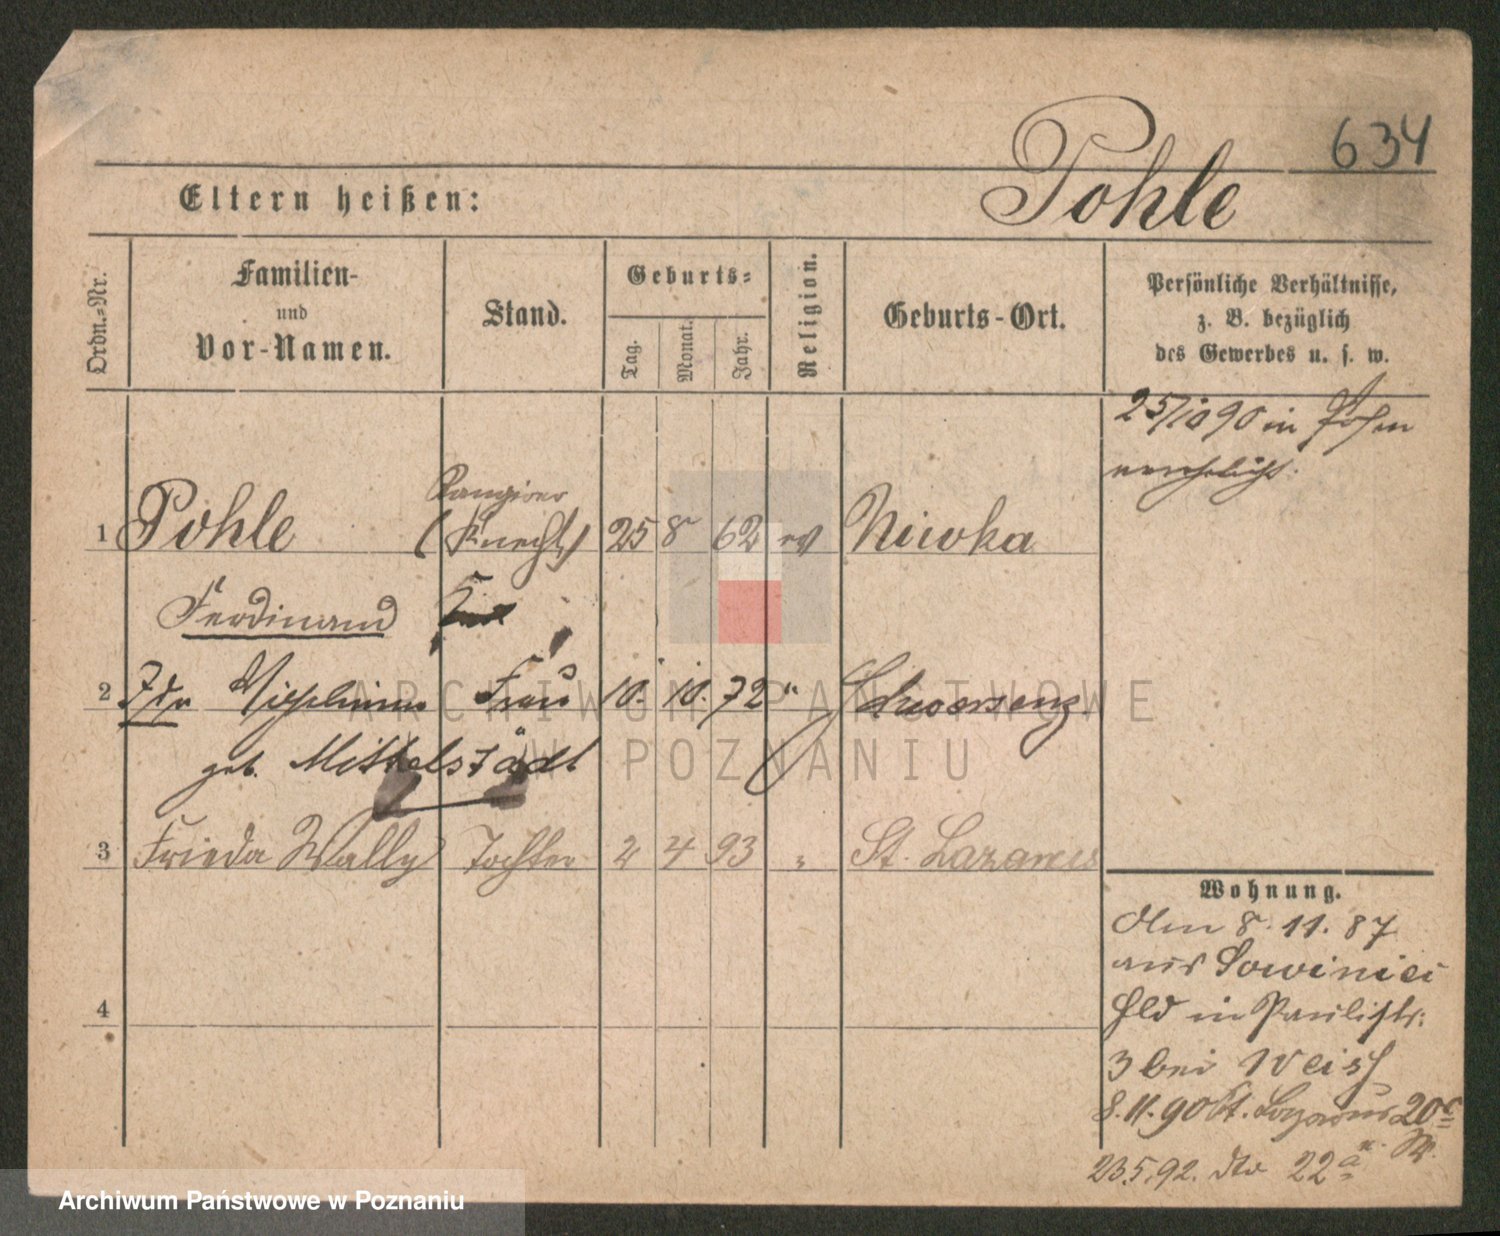 634
Eltern heißen:
Pohle
Ordn.-Nr.
Familien-
und
Vor-Namen.
Stand.
Geburts-
Tag.
Monat.
Jahr.
Religion.
Geburts-Ort.
Persönliche Verhältnisse,
z. B. bezüglich
des Gewerbes u. s. w.
25/10 90 in Posen
verehelicht.
Rangirer
1 Pohle (Knecht) 25 8 62 ev Niwka
Ferdinand
2 Wilhelmine Frau 10. 10. 72 " Schwersenz
geb. Mittelstädt
3 Frieda Wally Tochter 2 4 93 " St. Lazarus
4
Wohnung.
Am 8. 11. 87
aus Sowiniec
in Paulistr.
3 bei Weiss
8. 11. 90 St. Lazarus 20c
23.5.92. dto 22a
ARCHIWUM PAŃSTWOWE
W POZNANIU
Archiwum Państwowe w Poznaniu